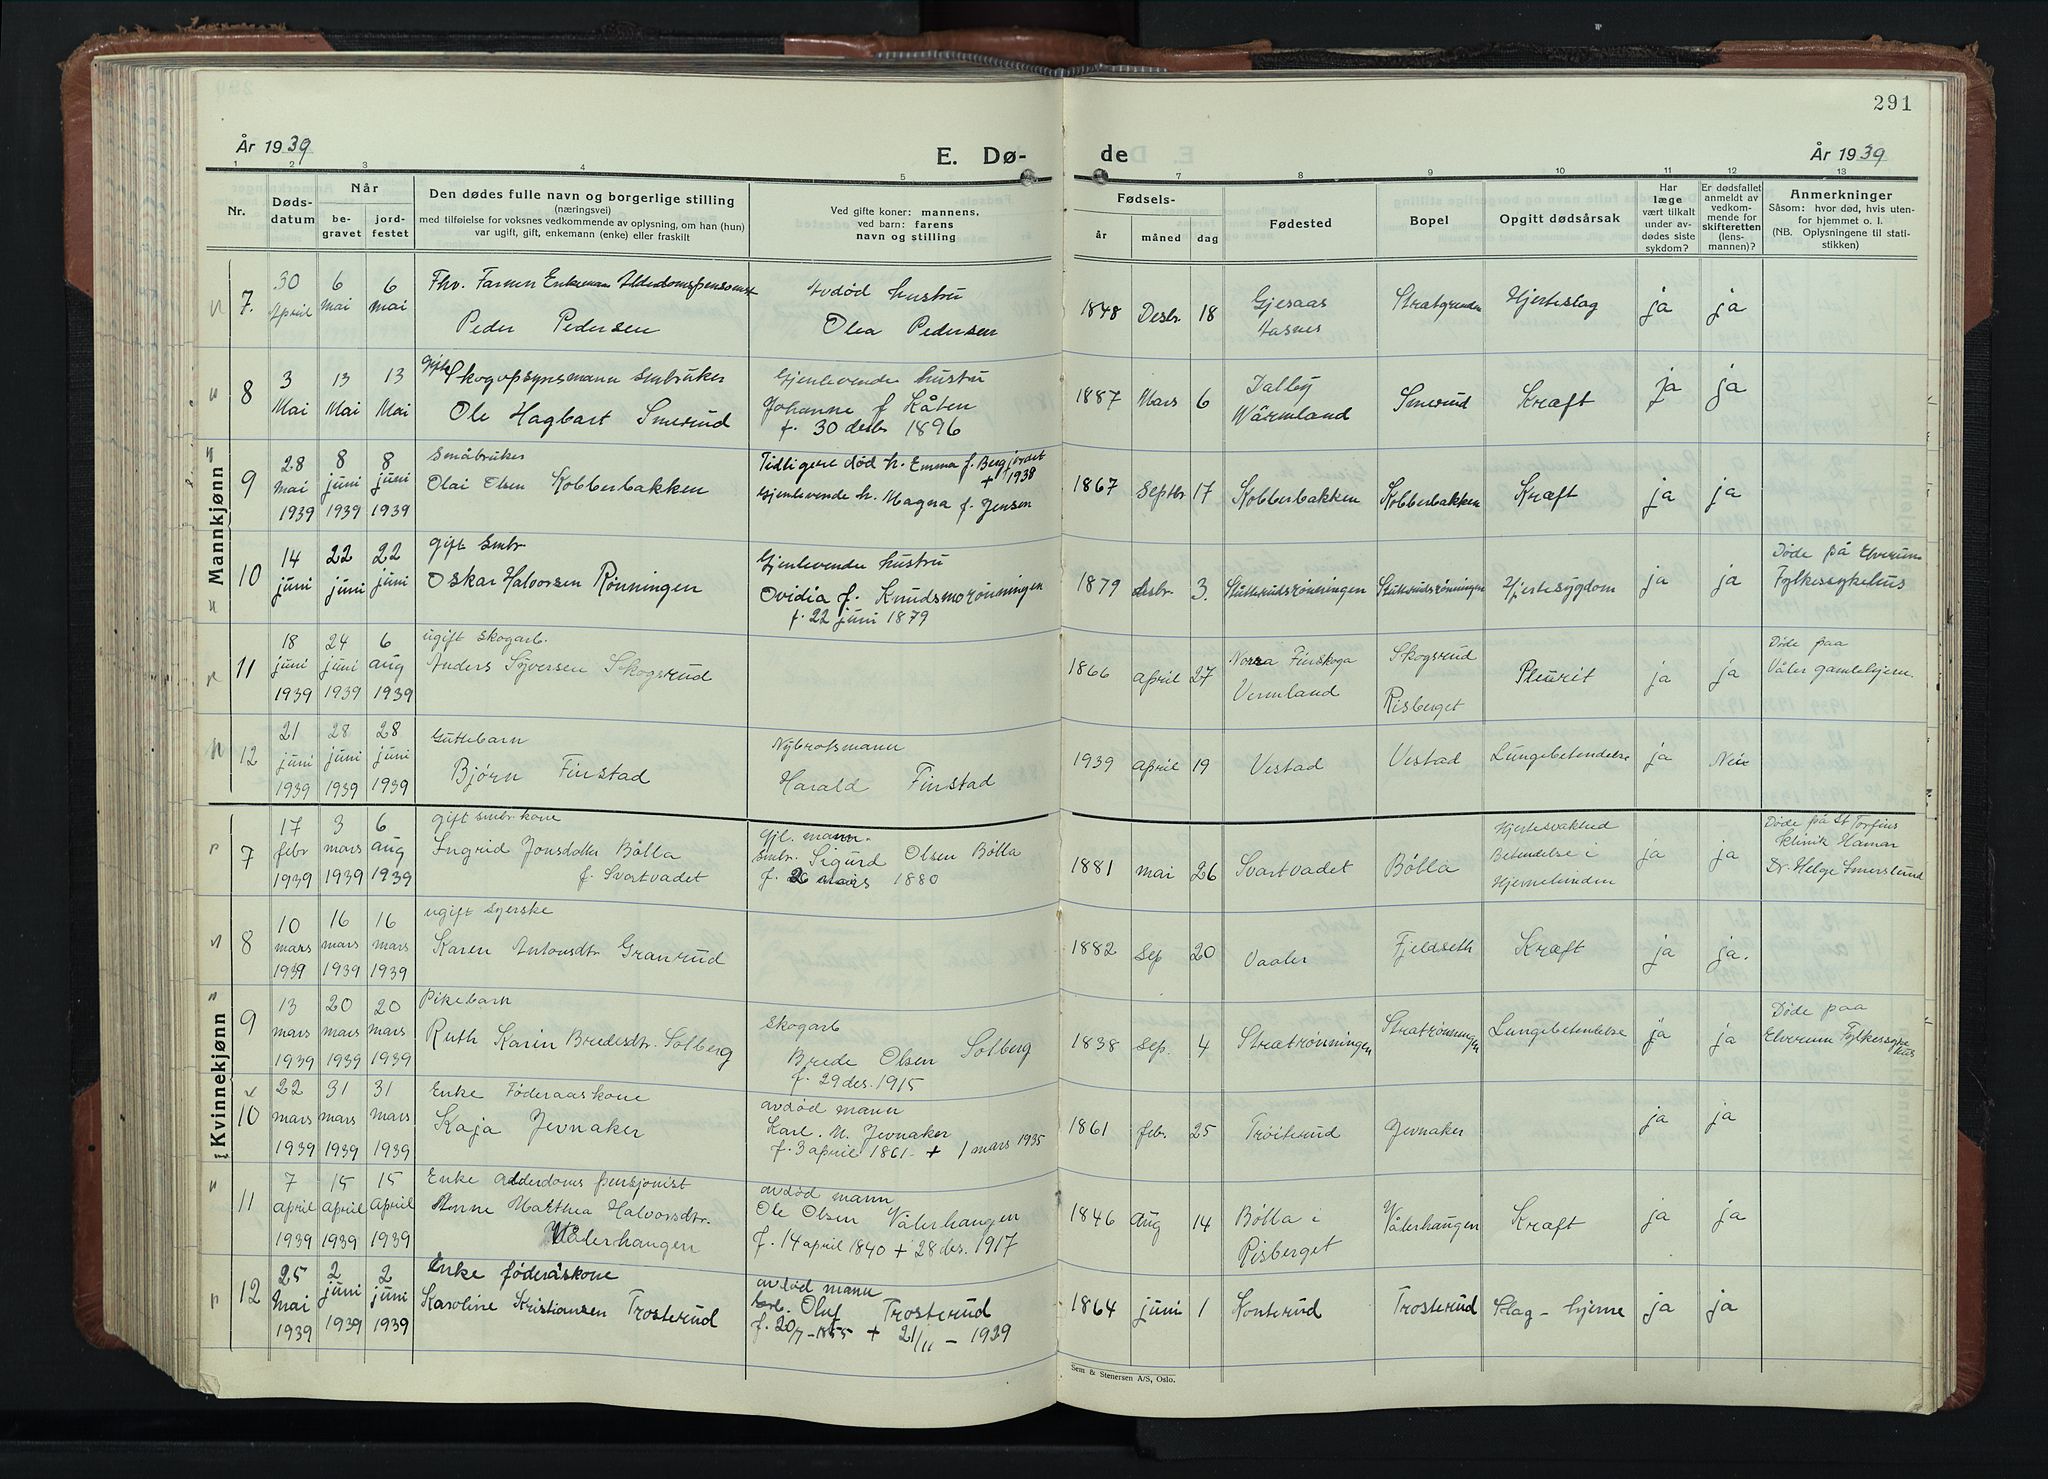 291
År 1939
E. Dø-
de
År 1939
1 2 3 4 5 7 8 9 10 11 12 13
Nr.
Døds-
datum
Når
be-
gravet
jord-
festet
Den dødes fulle navn og borgerlige stilling
(næringsvei)
med tilføielse for voksnes vedkommende av oplysning, om han (hun)
var ugift, gift, enkemann (enke) eller fraskilt
Ved gifte koner: mannens,
ved barn: farens
navn og stilling
Fødsels-
år måned dag
Fødested
Bopel
Opgitt dødsårsak
Har
læge
vært tilkalt
under av-
dødes siste
sykdom?
Er dødsfallet
anmeldt av
vedkom-
mende for
skifteretten
(lens-
mannen)?
Anmerkninger
Såsom: hvor død, hvis uten-
for hjemmet o. l.
(NB. Oplysningene til stati-
stikken)
Mannkjønn
7. 30 April 6 Mai 6 Mai
Fhv. Farmer Enkemann Alderdomspensionist
Peder Pedersen
Avdød hustru
Olea Pedersen
1848 Desbr 18 Gjesaas Aasnes Stratgrenden Hjerteslag ja ja
8 3 Mai 13 Mai 13 Mai
Gift Skogopsynsmann Smbruker
Ole Hagbart Smerud
Gjenlevende hustru
Johanne f. Kåten
f. 30 desbr 1896
1887 Mars 6 Dalby Wärmland Smerud Kræft ja ja
9 28 Mai 1939 8 juni 1939 8 juni 1939
Småbruker
Olai Olsen Kobberbakken
Tidligere død h. Emma f. Bergjordet
+ 1938
Gjenlevende h. Magna f. Jensen
1867 Septbr 17 Kobberbakken Kobberbakken Kræft ja ja
10 14 juni 22 juni 22 juni
gift Smbr
Oskar Halvorsen Rønningen
Gjenlevende hustru
Ovidia f. Knudsmorønningen
f. 22 juni 1879
1879 desbr. 3. Slutterudsrønningen Slutterudsrønningen Hjertesygdom ja ja
Døde på Elverum
Fylkessykehus
11 18 juni 1939 24 juni 1939 6 aug 1939
ugift skogarb.
Anders Syversen Skogsrud
1866 april 27 Norra Finskoga Vermland Skogsrud Risberget Pleurit ja ja
Døde paa
Våler gamlehjem.
12 21 juni 1939 28 juni 1939 28 juni 1939
Guttebarn
Bjørn Finstad
Nybrotsmann
Harald Finstad
1939 april 19 Vestad Vestad Lungebetendelse ja Nei
Kvinnekjønn
7 17 febr 1939 3 mars 1939 6 aug 1939
gift smbr. kone
Ingrid Jonsdatter Bölla
f. Svartvadet
Gjl. mann.
Smbr. Sigurd Olsen Bölla
f. 26 mars 1880
1881 mai 26 Svartvadet Bölla
Hjertesvakhed
Betendelse i
Hjernehinden
ja ja
Døde på St Torfins
klinik Hamar
Dr. Helge Smerslund
8 10 mars 1939 16 mars 1939 16 mars 1939
ugift syerske
Karen Antonsdtr Granrud
1882 Sep 20 Vaaler Fjeldseth Kræft ja ja.
9 13 mars 1939 20 mars 1939 20 mars 1939
Pikebarn
Ruth Karin Bredesdtr. Solberg
Skogarb
Brede Olsen Solberg
f. 29 des. 1915
1838 Sep. 4 Stratrønningen Stratrønningen Lungebetendelse ja ja
Døde paa
Elverum Fylkessykehus
10 22 mars 1939 31 mars 1939 31 mars 1939
Enke Føderaaskone
Kaja Jevnaker
avdød mann
Karl. M. Jevnaker
f. 3 april 1861 + 1 mars 1935
1861 feb. 25 Trøiterud Jevnaker ja ja
11 7 april 1939 15 april 1939 15 april 1939
Enke alderdoms pensjonist
Anne Marthea Halvorsdtr.
Vålerhaugen
avdød mann
Ole Olsen Vålerhaugen
f. 14 april 1840 + 28 des. 1917
1846 aug 14 Bölla i Risberget Vålerhaugen Kræft ja ja
12 25 Mai 1939 2 juni 1939 2 juni 1939
Enke føderåskone
Karoline Kristiansen Trosterud
avdød mann
Oluf Trosterud
f. 20/7-1855 + 21/11 - 1929
1864 juni 1 Konterud Trosterud Slag - hjerne ja ja
Sem & Stenersen A/S, Oslo.